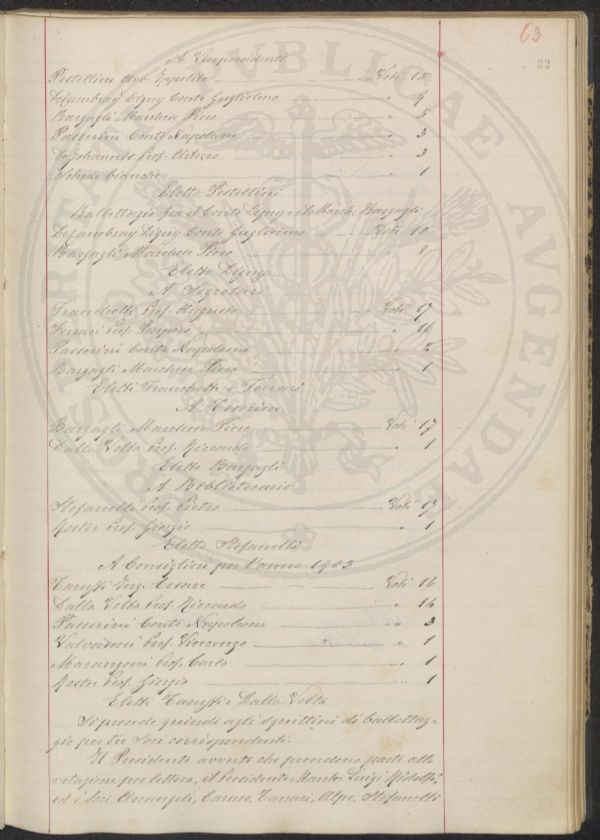 63
32
A Vicepresidenti
Pestellini Avv. Ippolito Voti 15
DeCambray Digny Conte Guglielmo " 9
Bargagli Marchese Piero " 5
Passerini Conte Napoleone " 3
DeJohannis Prof. Arturo " 3
" 1
Eletto Pestellini
Ballottaggio fra il Conte Digny e il March. Bargagli
DeCambray Digny Conte Guglielmo Voti 10
Bargagli Marchese Piero " 8
Eletto Digny
A Segretari
Franchetti Prof. Augusto Voti 17
Ferrari Prof. " 16
Passerini Conte Napoleone " 2
Bargagli Marchese Piero " 1
Eletti Franchetti e Ferrari
A Tesoriere
Bargagli Marchese Piero Voti 17
Dalla Volta Prof. Riccardo " 1
Eletto Bargagli
A Bibliotecario
Stefanelli Prof. Pietro Voti 17
Roster Prof. Giorgio " 1
Eletto Stefanelli
A Consiglieri per l'anno 1903
Taruffi Ing. Voti 16
Dalla Volta Prof. Riccardo " 14
Passerini Conte Napoleone " 3
Valvassori Prof. Vincenzo " 1
Marangoni Prof. Carlo " 1
Roster Prof. Giorgio " 1
Eletti Taruffi e Dalla Volta
Si procede quindi agli squittini di ballottag-
gio per tre Soci corrispondenti.
Il Presidente avverte che prendono parte alla
votazione per lettera, il Presidente March. Luigi Ridolfi,
ed i Soci Arcangeli, Caruso, Tanari, Alpe, Stefanelli
PUBLICAE
AVGENDAE